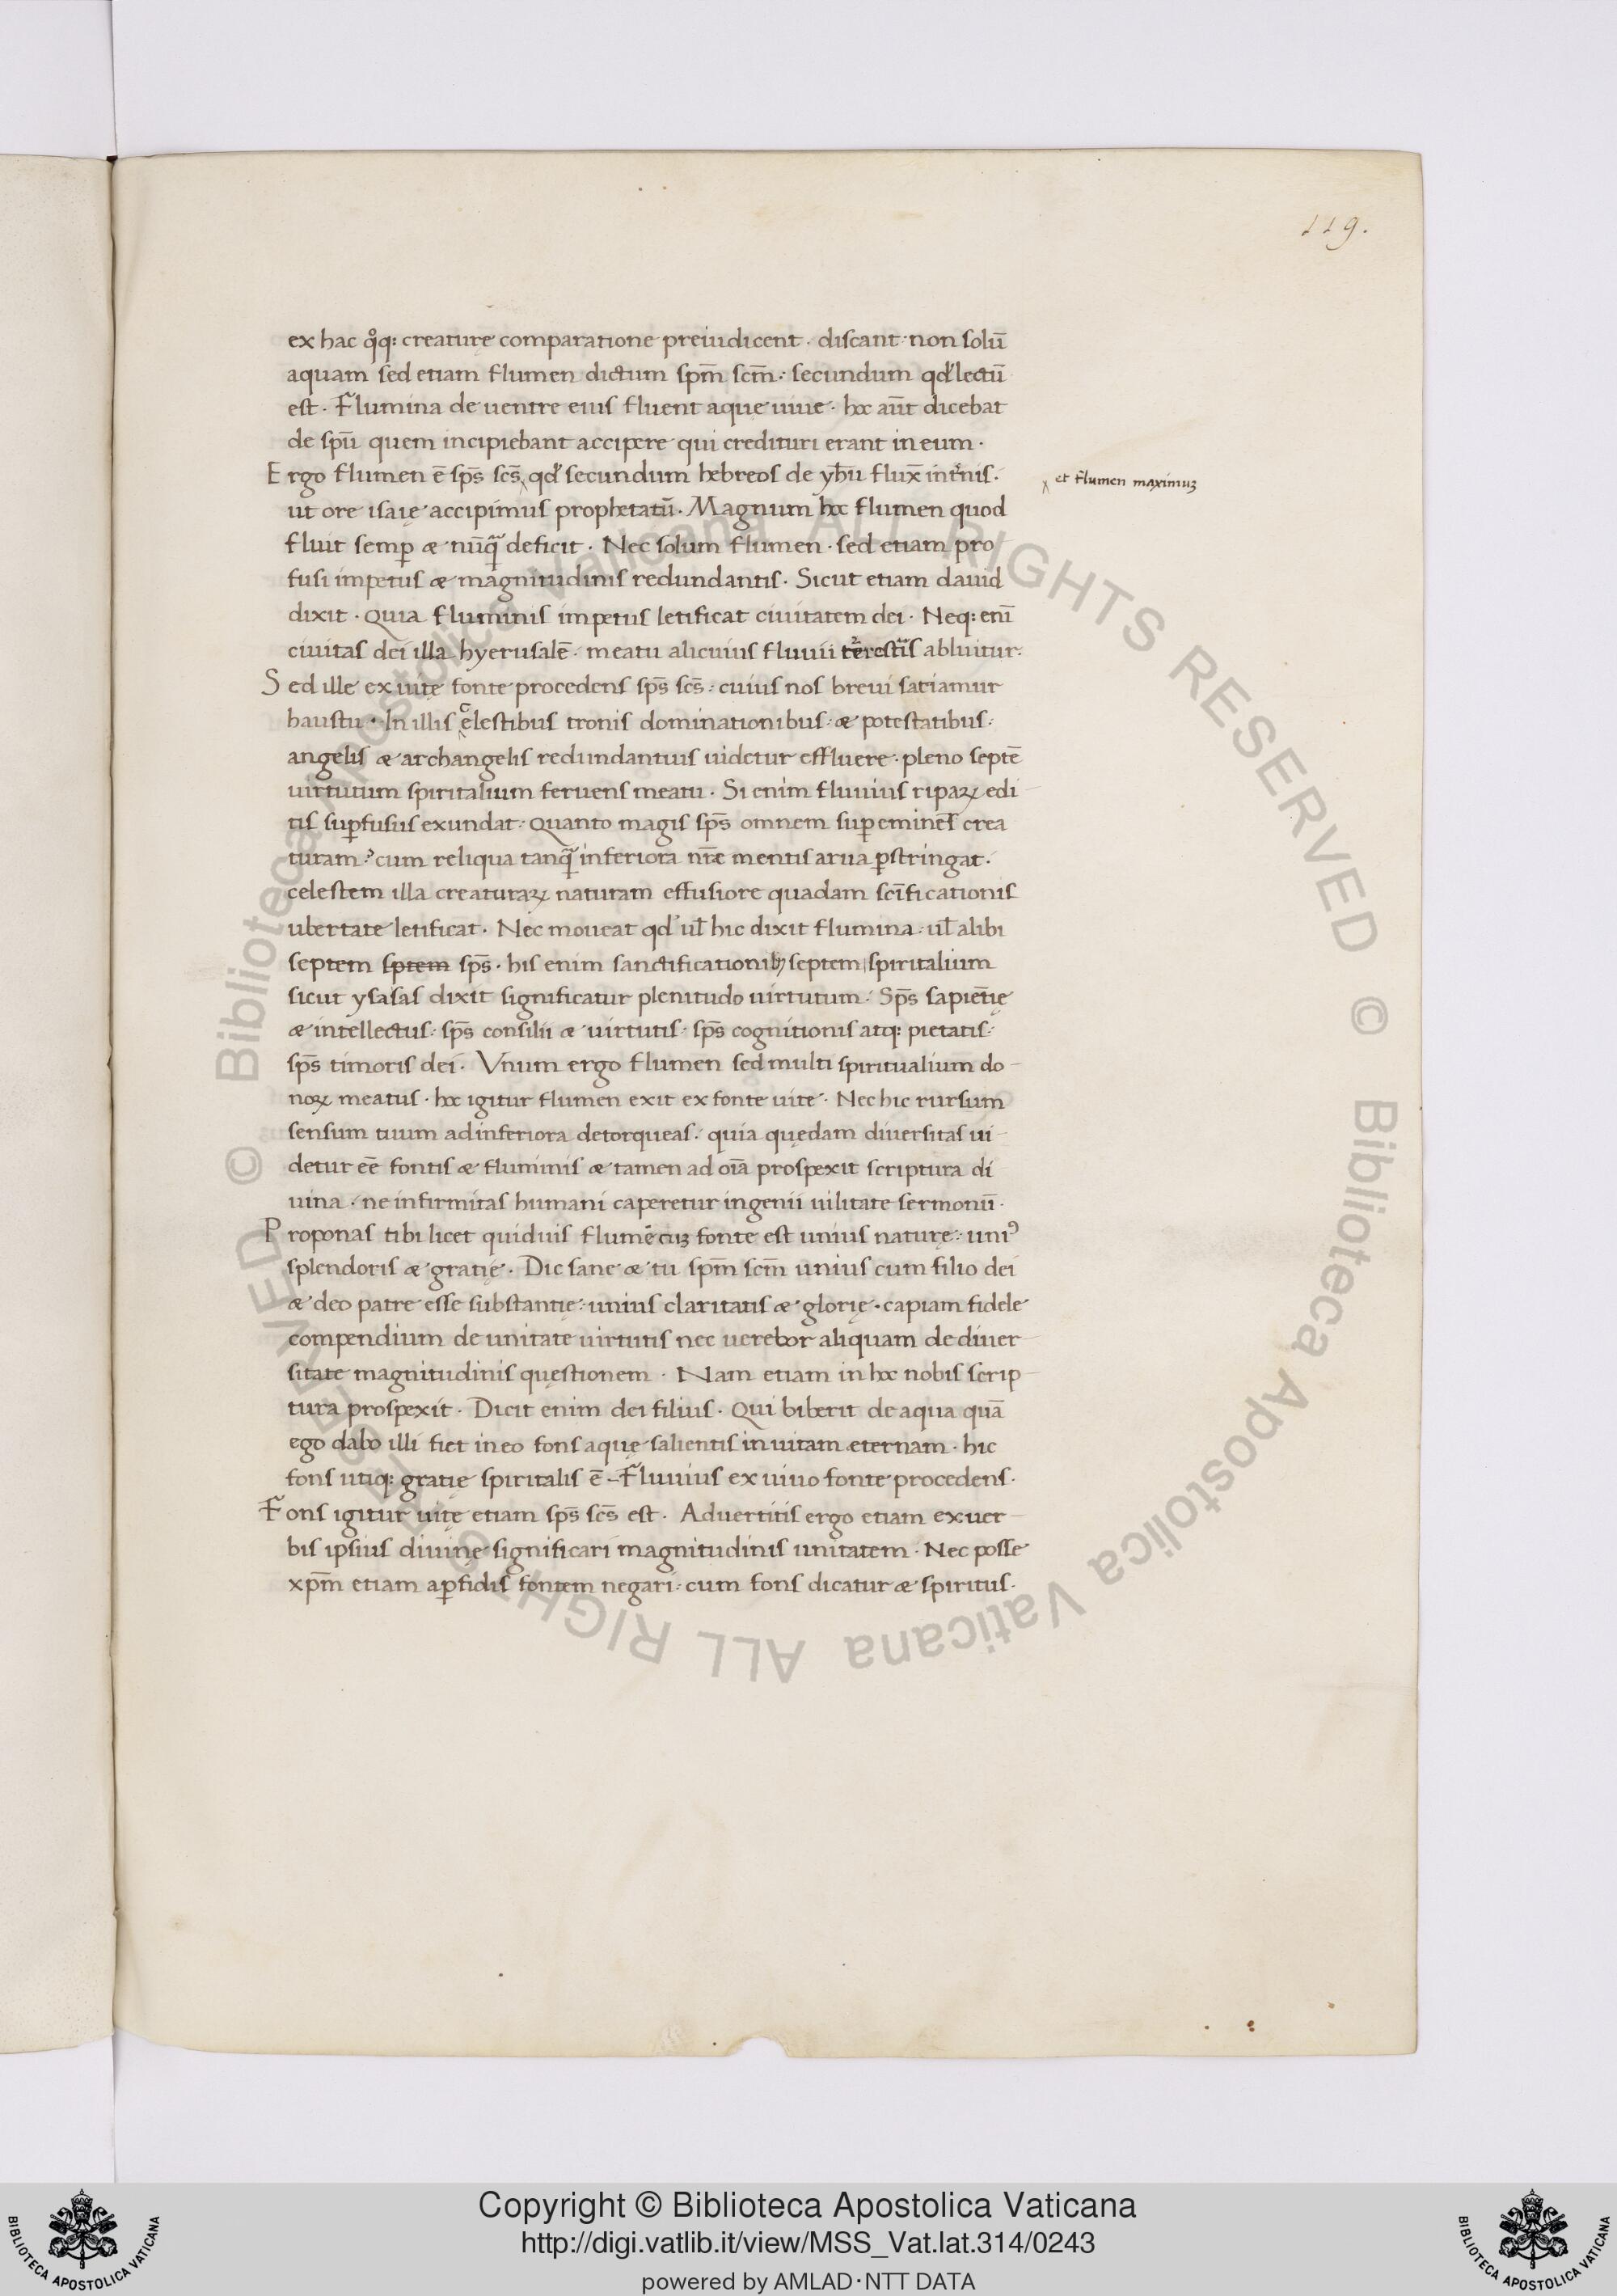 119.
ex hac qͦq: creaturę comparatione preiudicent · discant: non solū
aquam sed etiam flumen dictum sp̄m sc̄m: secundum qd' lectū
est · Flumina de uentre eius fluent aque uiue · hoc aūt dicebat
de spū quem incipiebant accipere qui credituri erant in eum ·
Ergo flumen ē sp̄s sc̄s qd' secundum hebreos de yħu flux̄ in tr̄nis.
et flumen maximuʒ
ut ore isaię accipimus prophetatū · Magnum hoc flumen quod
fluit semꝑ æ nūq̃ deficit · Nec solum flumen · sed etiam pro
fusi impetus æ magnitudinis redundantis · Sicut etiam dauid
dixit · Quia fluminis impetus letificat ciuitatem dei · Neq: enī
ciuitas dei illa hyerusalē · meatu alicuius fluuii terrestris abluitur.
Sed ille ex uitę fonte procedens sp̄s sc̄s: cuius nos breui satiamur
haustu · In illis celestibus tronis dominationibus: æ potestatibus:
angelis æ archangelis redundantius uidetur effluere · pleno septē
uirtutum spiritalium feruens meatu · Si enim fluuius riparꝝ edi
tis suꝑfusus exundat: Quanto magis sp̄s omnem suꝑeminēs crea
turam? cum reliqua tanq̃ inferiora nr̄æ mentis arua ꝑstringat.
celestem illa creaturaꝝ naturam effusiore quadam scīficationis
ubertate letificat · Nec moueat qd' ul̄ hic dixit flumina: ul̄ alibi
septem sptem sp̄s · his enim sanctificationibꝰ septem spiritalium
sicut ysasas dixit significatur plenitudo uirtutum: Sp̄s sapiētię
æ intellectus: sp̄s consilii æ uirtutis: sp̄s cognitionis atq: pietatis:
sp̄s timoris dei · Vnum ergo flumen sed multi spiritualium do-
noꝝ meatus · hoc igitur flumen exit ex fonte uite · Nec hic rursum
sensum tuum ad inferiora detorqueas: quia quędam diuersitas ui-
detur eē fontis æ fluminis æ tamen ad oīa prospexit scriptura di
uina · ne infirmitas humani caperetur ingenii uilitate sermonū ·
Proponas tibi licet quiduis flumē cuʒ fonte est unius naturę: uniꝰ
splendoris æ gratię · Dic sane æ tu sp̄m sc̄m unius cum filio dei
æ deo patre esse substantię: unius claritatis æ glorię · capiam fidele
compendium de unitate uirtutis nec uerebor aliquam de diuer-
sitate magnitudinis quęstionem · Nam etiam in hoc nobis scrip-
tura prospexit · Dicit enim dei filius · Qui biberit de aqua quā
ego dabo illi fiet in eo fons aquę salientis in uitam eternam · hic
fons utiq: gratię spiritalis ē – Fluuius ex uiuo fonte procedens ·
Fons igitur uitę etiam sp̄s sc̄s est · Aduertitis ergo etiam ex uer-
bis ipsius diuinę significari magnitudinis unitatem · Nec posse
xp̄m etiam aꝑfidis fontem negari: cum fons dicatur æ spiritus ·
© Biblioteca Apostolica Vaticana ALL RIGHTS RESERVED © Biblioteca Apostolica Vaticana ALL RIGHTS RESERVED
BIBLIOTECA APOSTOLICA VATICANA
Copyright © Biblioteca Apostolica Vaticana
http://digi.vatlib.it/view/MSS_Vat.lat.314/0243
powered by AMLAD·NTT DATA
BIBLIOTECA APOSTOLICA VATICANA